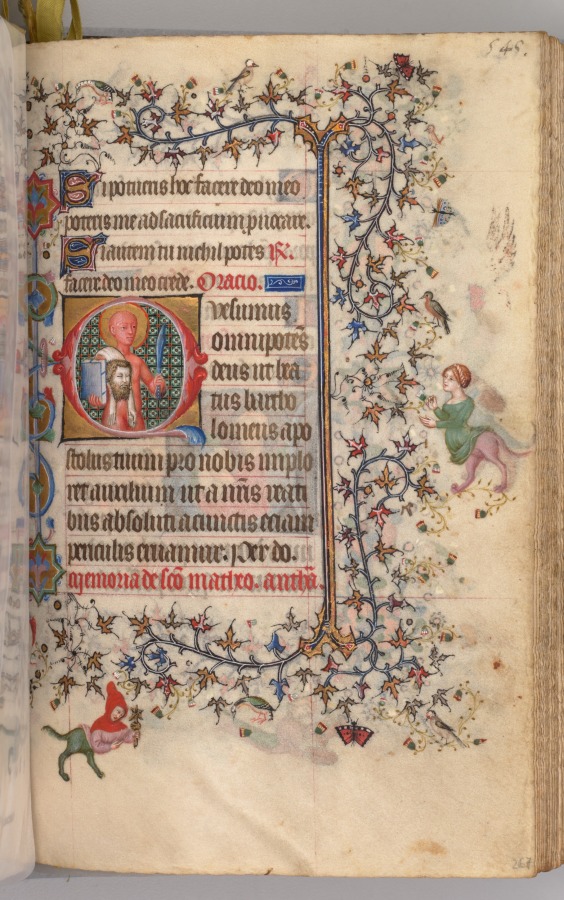 545.
Si potueris hoc facere deo meo
poteris me ad sacrificium prouocare.
Si autem tu nichil potes R.
facere deo meo crede. Oracio.
Quesumus
omnipotẽs
deus ut bea
tus bartho
lomeus apo
stolus tuus pro nobis implo
ret auxilium ut a nr̃is reati
bus absoluti a cunctis eciam
periculis eruamur. Per do.
Memoria de sc̃o matheo. anthã.
267